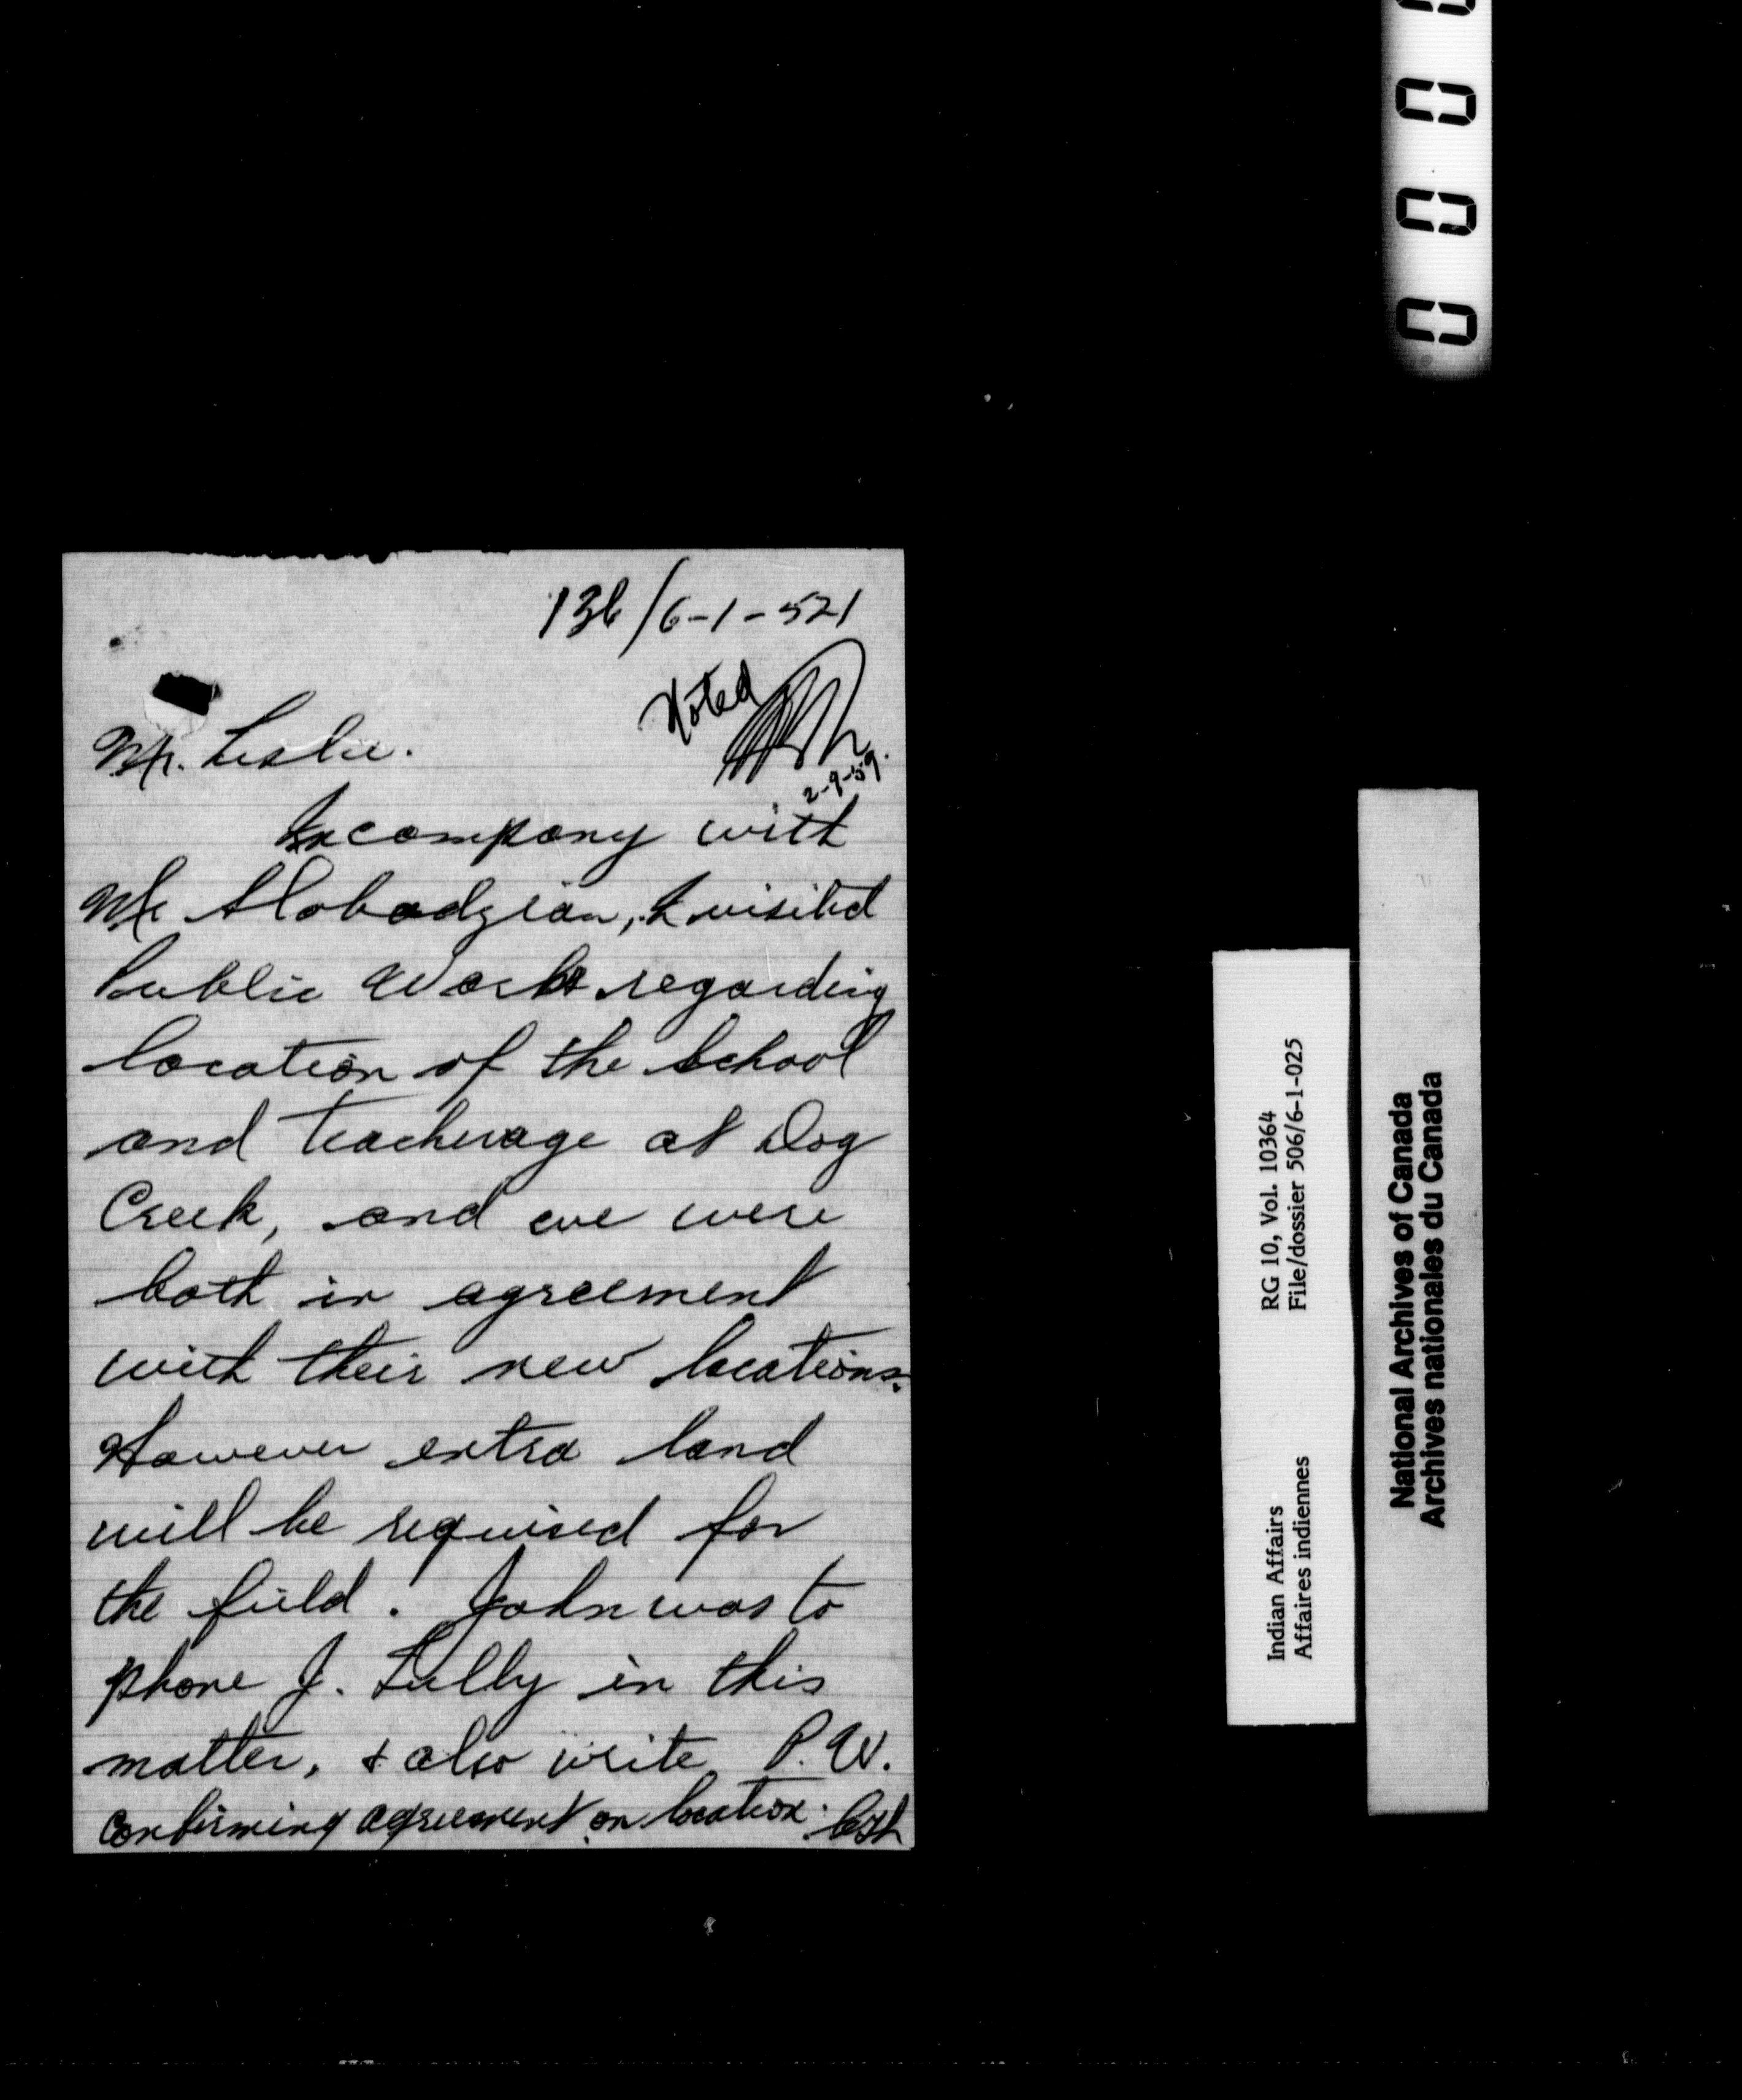 136/6-1-521
Noted
2-9-59.
Mr. Leslie.
In company with
Mr Slobodzian, I visited
Public Works regarding
location of the school
and teacherage at Dog
Creek, and we were
both in agreement
with their new locations.
However extra land
will be required for
the field. John was to
phone J. Lully in this
matter, & also write P.W.
confirming agreement on location.
RG 10, Vol. 10364
File/dossier 506/6-1-025
Indian Affairs
Affaires indiennes
National Archives of Canada
Archives nationales du Canada
0 0 0